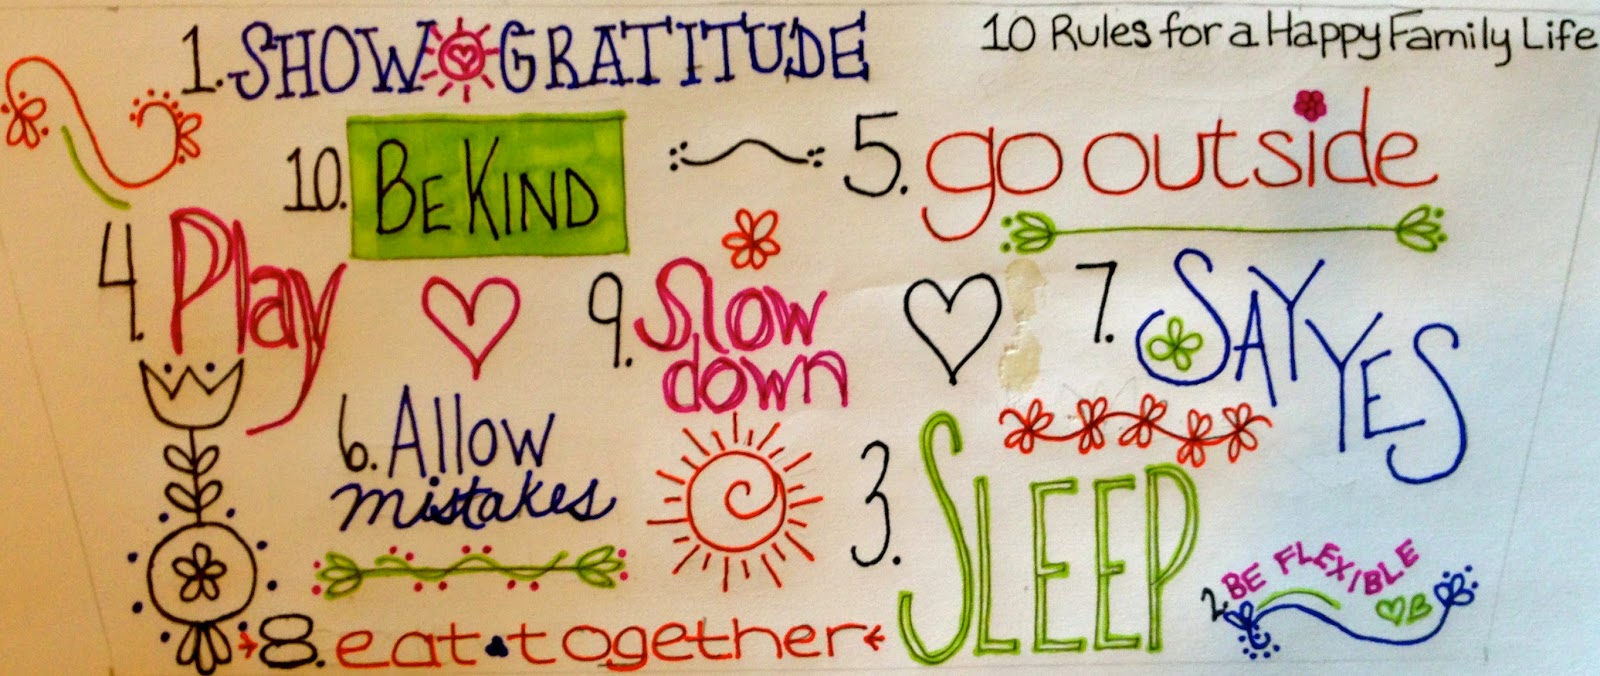 10 Rules for a Happy Family Life
1. SHOW GRATITUDE
10. BE KIND
5. go outside
4. Play
9. Slow
down
7. SAY
YES
6. Allow
mistakes
3. SLEEP
2. BE FLEXIBLE
8. eat together